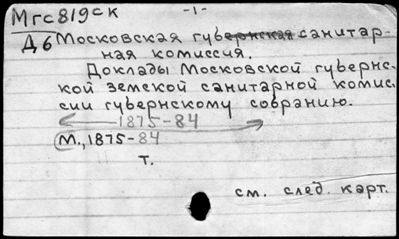 Мгс819ск -1-
Д6 Московская губернская санитар-
ная комиссия.
Доклады Московской губернс-
кой земской санитарной комис-
сии губернскому собранию.
1875-84
М., 1875-84
т.
см. след. карт.